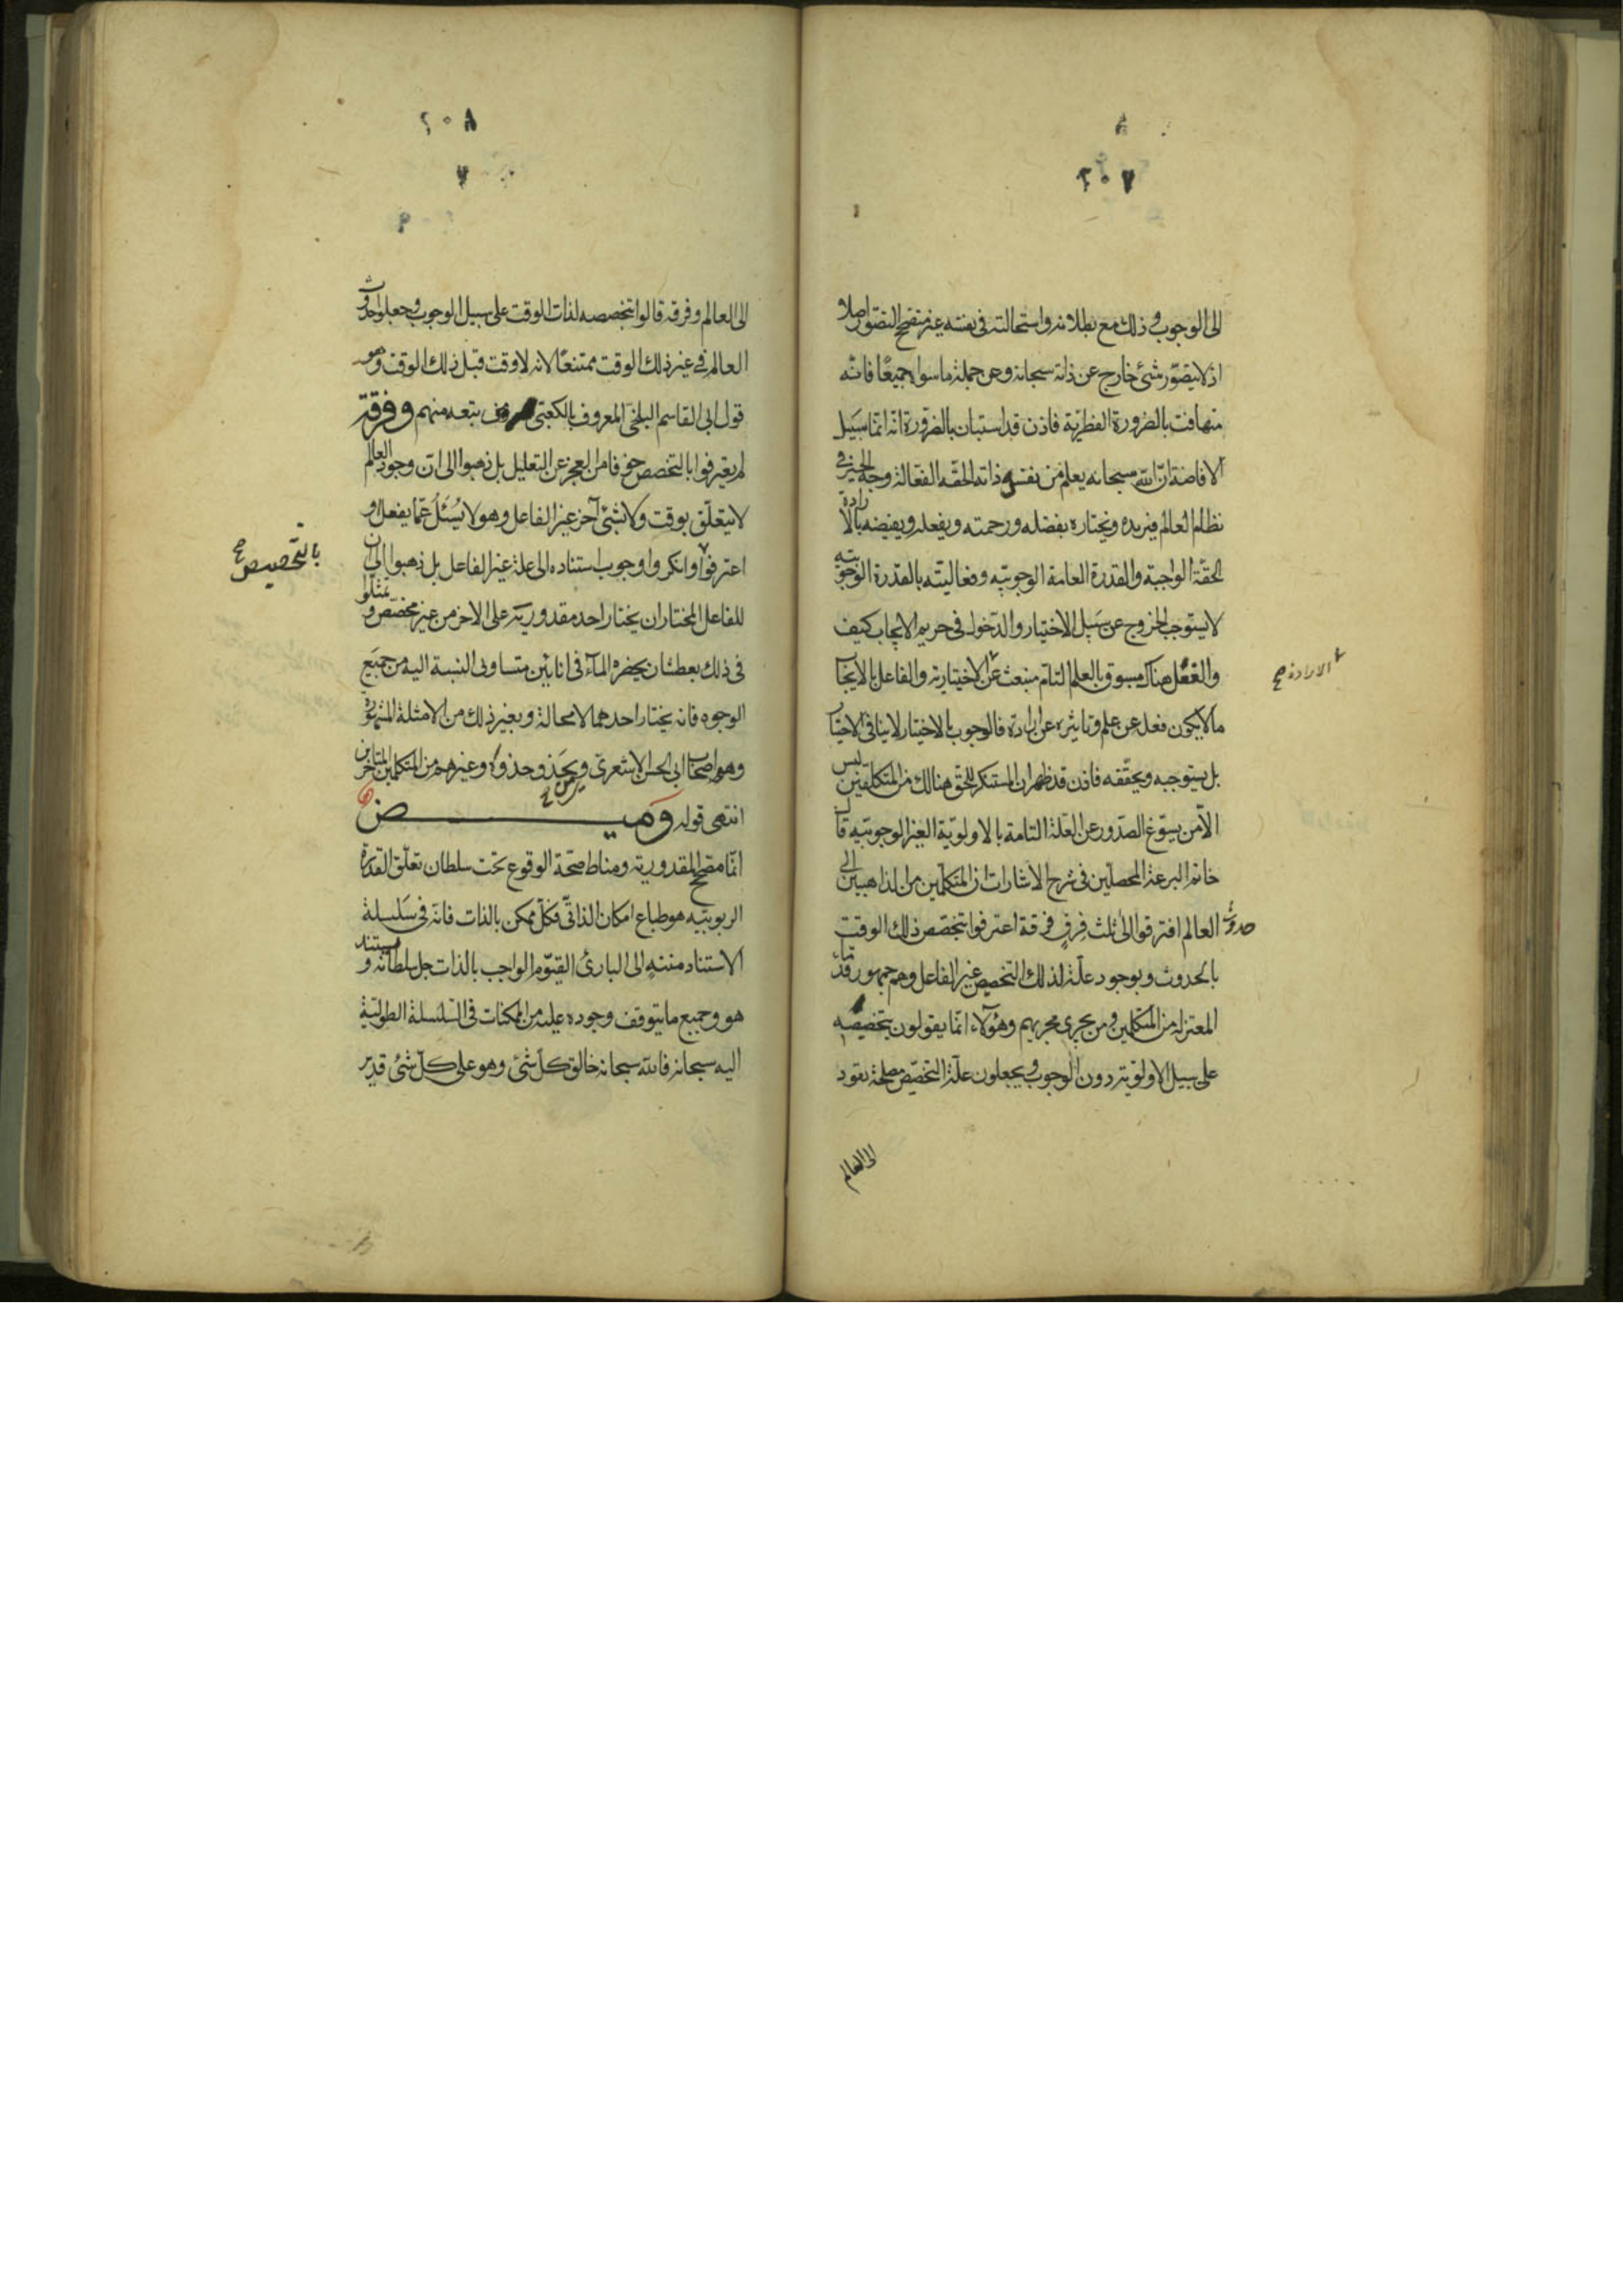 ٢٠٧
الى الوجوب وذلك مع بطلانه واستحالته فى نفسه غير متصحح التصور اصلا
اذ لا يتصور شئ خارج عن ذاته سبحانه وعن جملة ما سواه جميعًا فانه
متهافت بالضرورة الفطرية فاذن قد استبان بالضرورة انه انما سبيل
الافاضة ان الله سبحانه يعلم من نفس ذاته الحقه الفعالة وجه الخير فى
نظام العالم فيريده ويختاره بفضله ورحمته ويفعله ويفيضه بالارادة
الحقة الواجبة والقدرة العامة الوجوبيه وفعاليته بالقدرة الوجوبيه
لا يستوجب الخروج عن سبيل الاختيار والدخول فى حريم الايجاب كيف
والفعل هناك مسبوق بالعلم التام منبعث عن الاختيارية والفاعل بالايجاب
الارادة صح
ما لا يكون فعله عن علم وتاثيره عن ارادة فالوجوب بالاختيار لا ينافى الاختيار
بل يستوجبه ويحققه فاذن قد ظهر ان المستنكر للحق هنالك من المتكلفين ليس
الا من يسوغ الصدور عن العلة التامة بالاولوية الغير الوجوبيه قال
خاتم البرعة المحصلين فى شرح الاشارات ان المتكلمين من الذاهبين الى
حدوث العالم افترقوا الى ثلث فِرقٍ فرقة اعترفوا بتخصص ذلك الوقت
بالحدوث وبوجود علة لذلك التخصيص غير الفاعل وهم جمهور قدماء
المعتزله من المتكلمين ومن يجرى مجريهم وهؤلاء انما يقولون بتخصيصه
على سبيل الاولوية دون الوجوب ويجعلون علة التخصص مصلحة تعود
الى العالم
٢٠٨
الى العالم وفرقه قالوا بتخصصه لذات الوقت على سبيل الوجوب وجعلوا حدوث
العالم فى غير ذلك الوقت ممتنعًا لانه لا وقت قبل ذلك الوقت وهو
قول ابى القاسم البلخى المعروف بالكعبى ومن يتبعه منهم وفرقة
لم يعترفوا بالتخصص خوفا من العجز عن التعليل بل ذهبوا الى ان وجود العالم
لا يتعلق بوقت ولا بشئ آخر غير الفاعل وهو لا يُسئَلُ عمّا يفعل او
اعترفوا وانكروا وجوب استناده الى علة غير الفاعل بل ذهبوا الى ان
بالتخصيص صح
للفاعل المختار ان يختار احد مقدوريه على الاخر من غير مخصص وتمثلوا
فى ذلك بعطشان يحضره المآء فى انائين متساوى النسبة اليه من جميع
الوجوه فانه يختار احدهما لا محالة وبغير ذلك من الامثلة المشهورة
وهو اصحاب ابى الحسن الاشعرى ويحذو حذوه وغيرهم من المتكلمين المتاخرين
انتهى قوله وميض
انما مصحح المقدورية ومناط صحة الوقوع تحت سلطان تعلق القدرة
الربوبيه هو طباع امكان الذاتى فكل ممكن بالذات فانه فى سلسلة
الاستناد منتهٍ الى البارئ القيوم الواجب بالذات جل سلطانه ويستند
هو وجميع ما يتوقف وجوده عليه من الممكنات فى السلسلة الطولية
اليه سبحانه فالله سبحانه خالق كل شئ وهو على كل شئ قدير